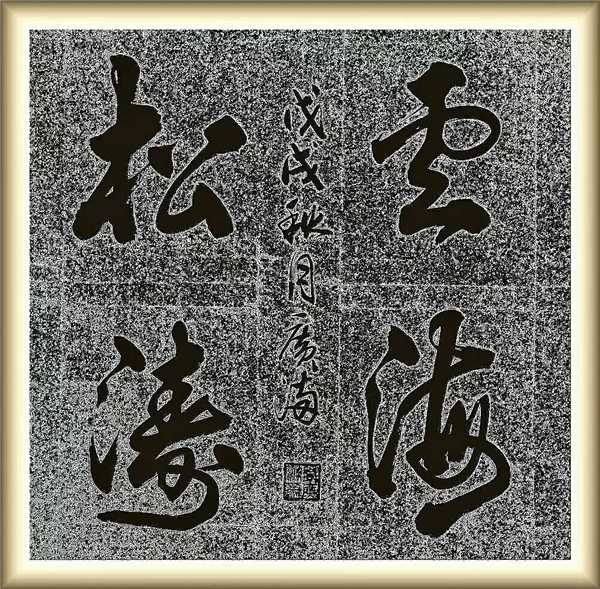 雲海
松濤
戊戌秋月廣海